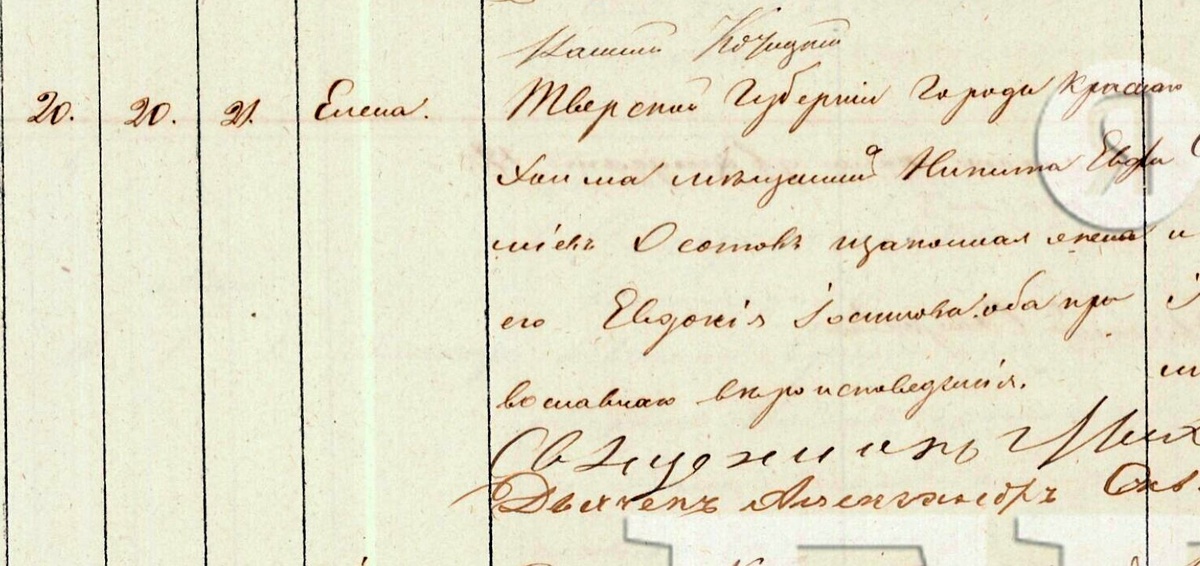 20. 20. 21. Елена. Тверской Губернии Города Краснаго
Холма мѣщанинъ Никита Евфи
міевъ Осотовъ изаконная жена
его Евдокія Іосифова. оба пра
вославнаго вѣроисповеданія.
Священникъ Мих
Дьячекъ Александръ